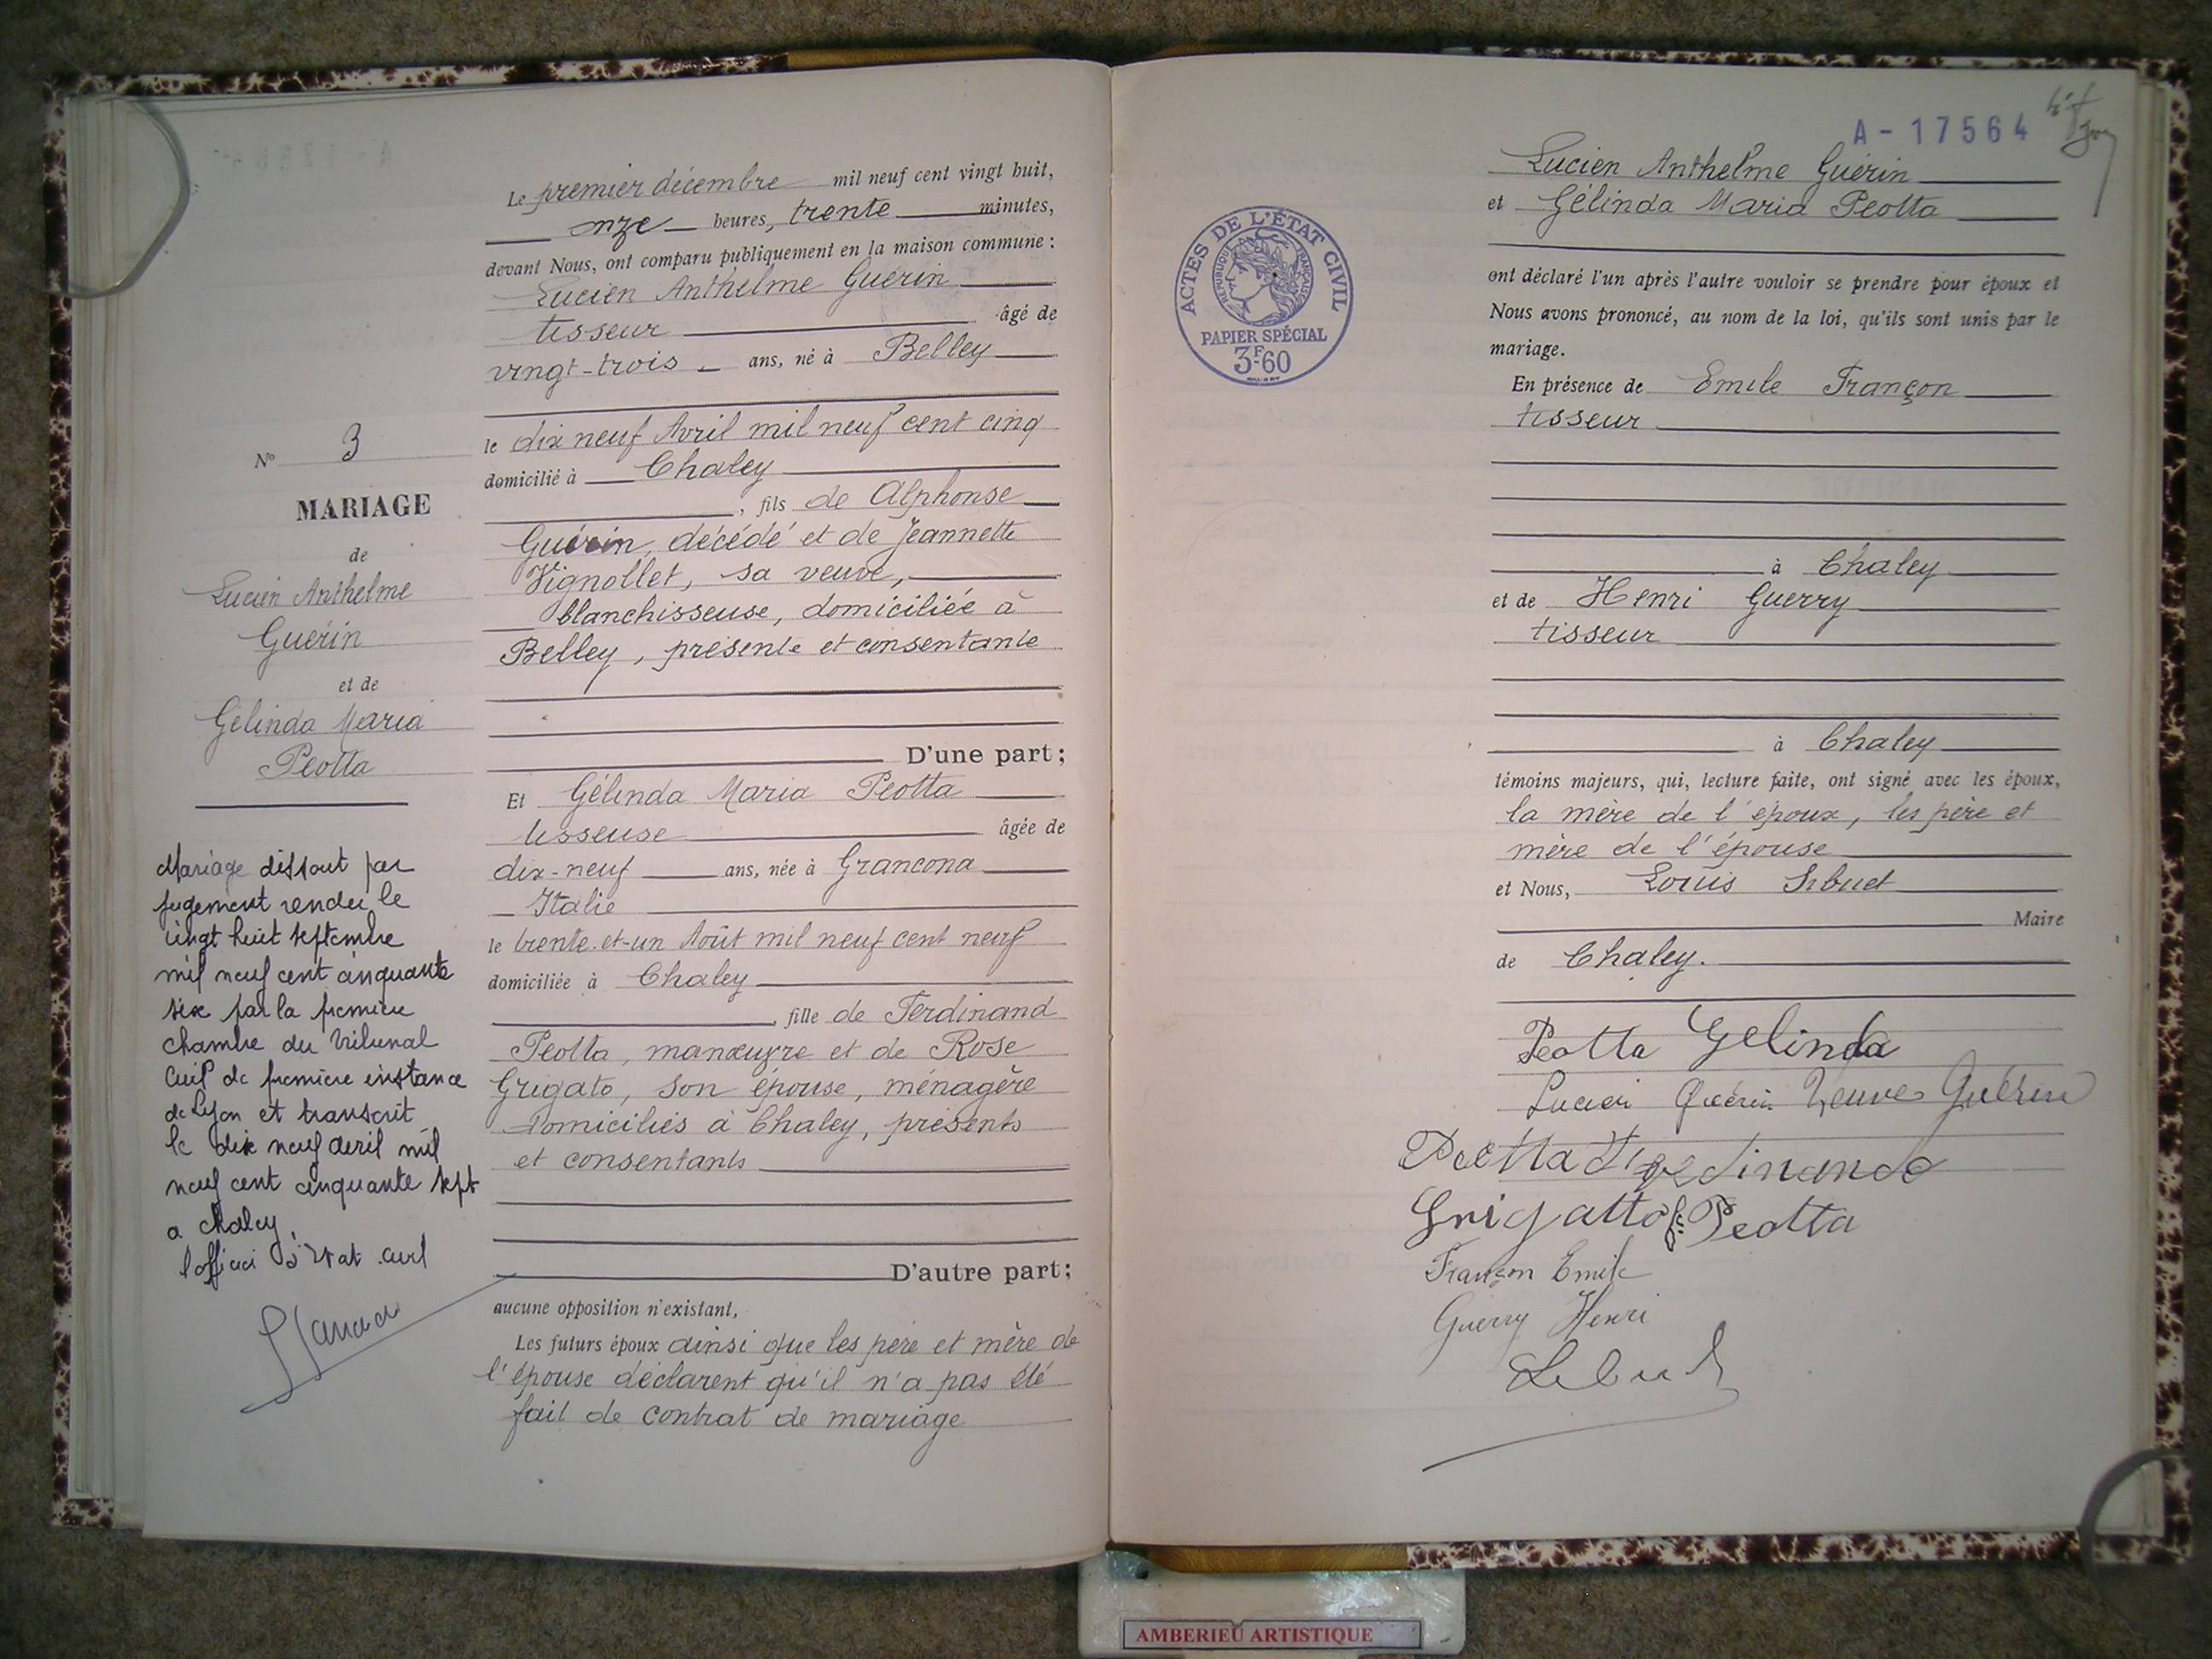 N° 3
MARIAGE
de
Lucien Anthelme
Guérin
et de
Gélinda Maria
Peotta
Mariage dissout par
jugement rendu le
vingt huit septembre
mil neuf cent cinquante
six par la première
chambre du tribunal
civil de première instance
de Lyon et transcrit
le dix neuf avril mil
neuf cent cinquante sept
a chaley
l'officier d'état civil
Le premier décembre mil neuf cent vingt huit,
onze heures, trente minutes,
devant Nous, ont comparu publiquement en la maison commune :
Lucien Anthelme Guérin
tisseur âgé de
vingt-trois ans, né à Belley
le dix neuf Avril mil neuf cent cinq
domicilié à Chaley
, fils de Alphonse
Guérin, décédé et de Jeannette
Vignollet, sa veuve,
blanchisseuse, domiciliée à
Belley, présente et consentante
D'une part ;
Et Gélinda Maria Peotta
tisseuse âgée de
dix-neuf ans, née à Grancona
Italie
le trente-et-un Août mil neuf cent neuf
domiciliée à Chaley
, fille de Ferdinand
Peotta, manœuvre et de Rose
Grigato, son épouse, ménagère
domiciliés à Chaley, présents
et consentants
D'autre part ;
aucune opposition n'existant,
Les futurs époux ainsi que les père et mère de
l'épouse déclarent qu'il n'a pas été
fait de contrat de mariage
A - 17564
ACTES DE L'ÉTAT CIVIL
RÉPUBLIQUE FRANÇAISE
PAPIER SPÉCIAL
3F60
Lucien Anthelme Guérin
et Gélinda Maria Peotta
ont déclaré l'un après l'autre vouloir se prendre pour époux et
Nous avons prononcé, au nom de la loi, qu'ils sont unis par le
mariage.
En présence de Emile Françon
tisseur
à Chaley
et de Henri Guerry
tisseur
à Chaley
témoins majeurs, qui, lecture faite, ont signé avec les époux,
la mère de l'époux, les père et
mère de l'épouse
et Nous, Louis
Maire
de Chaley.
Peotta Gelinda
Lucien Guérin Veuve Guérin
Peotta
Grigatto Peotta
Françon Emile
Guerry Henri
AMBERIEU ARTISTIQUE